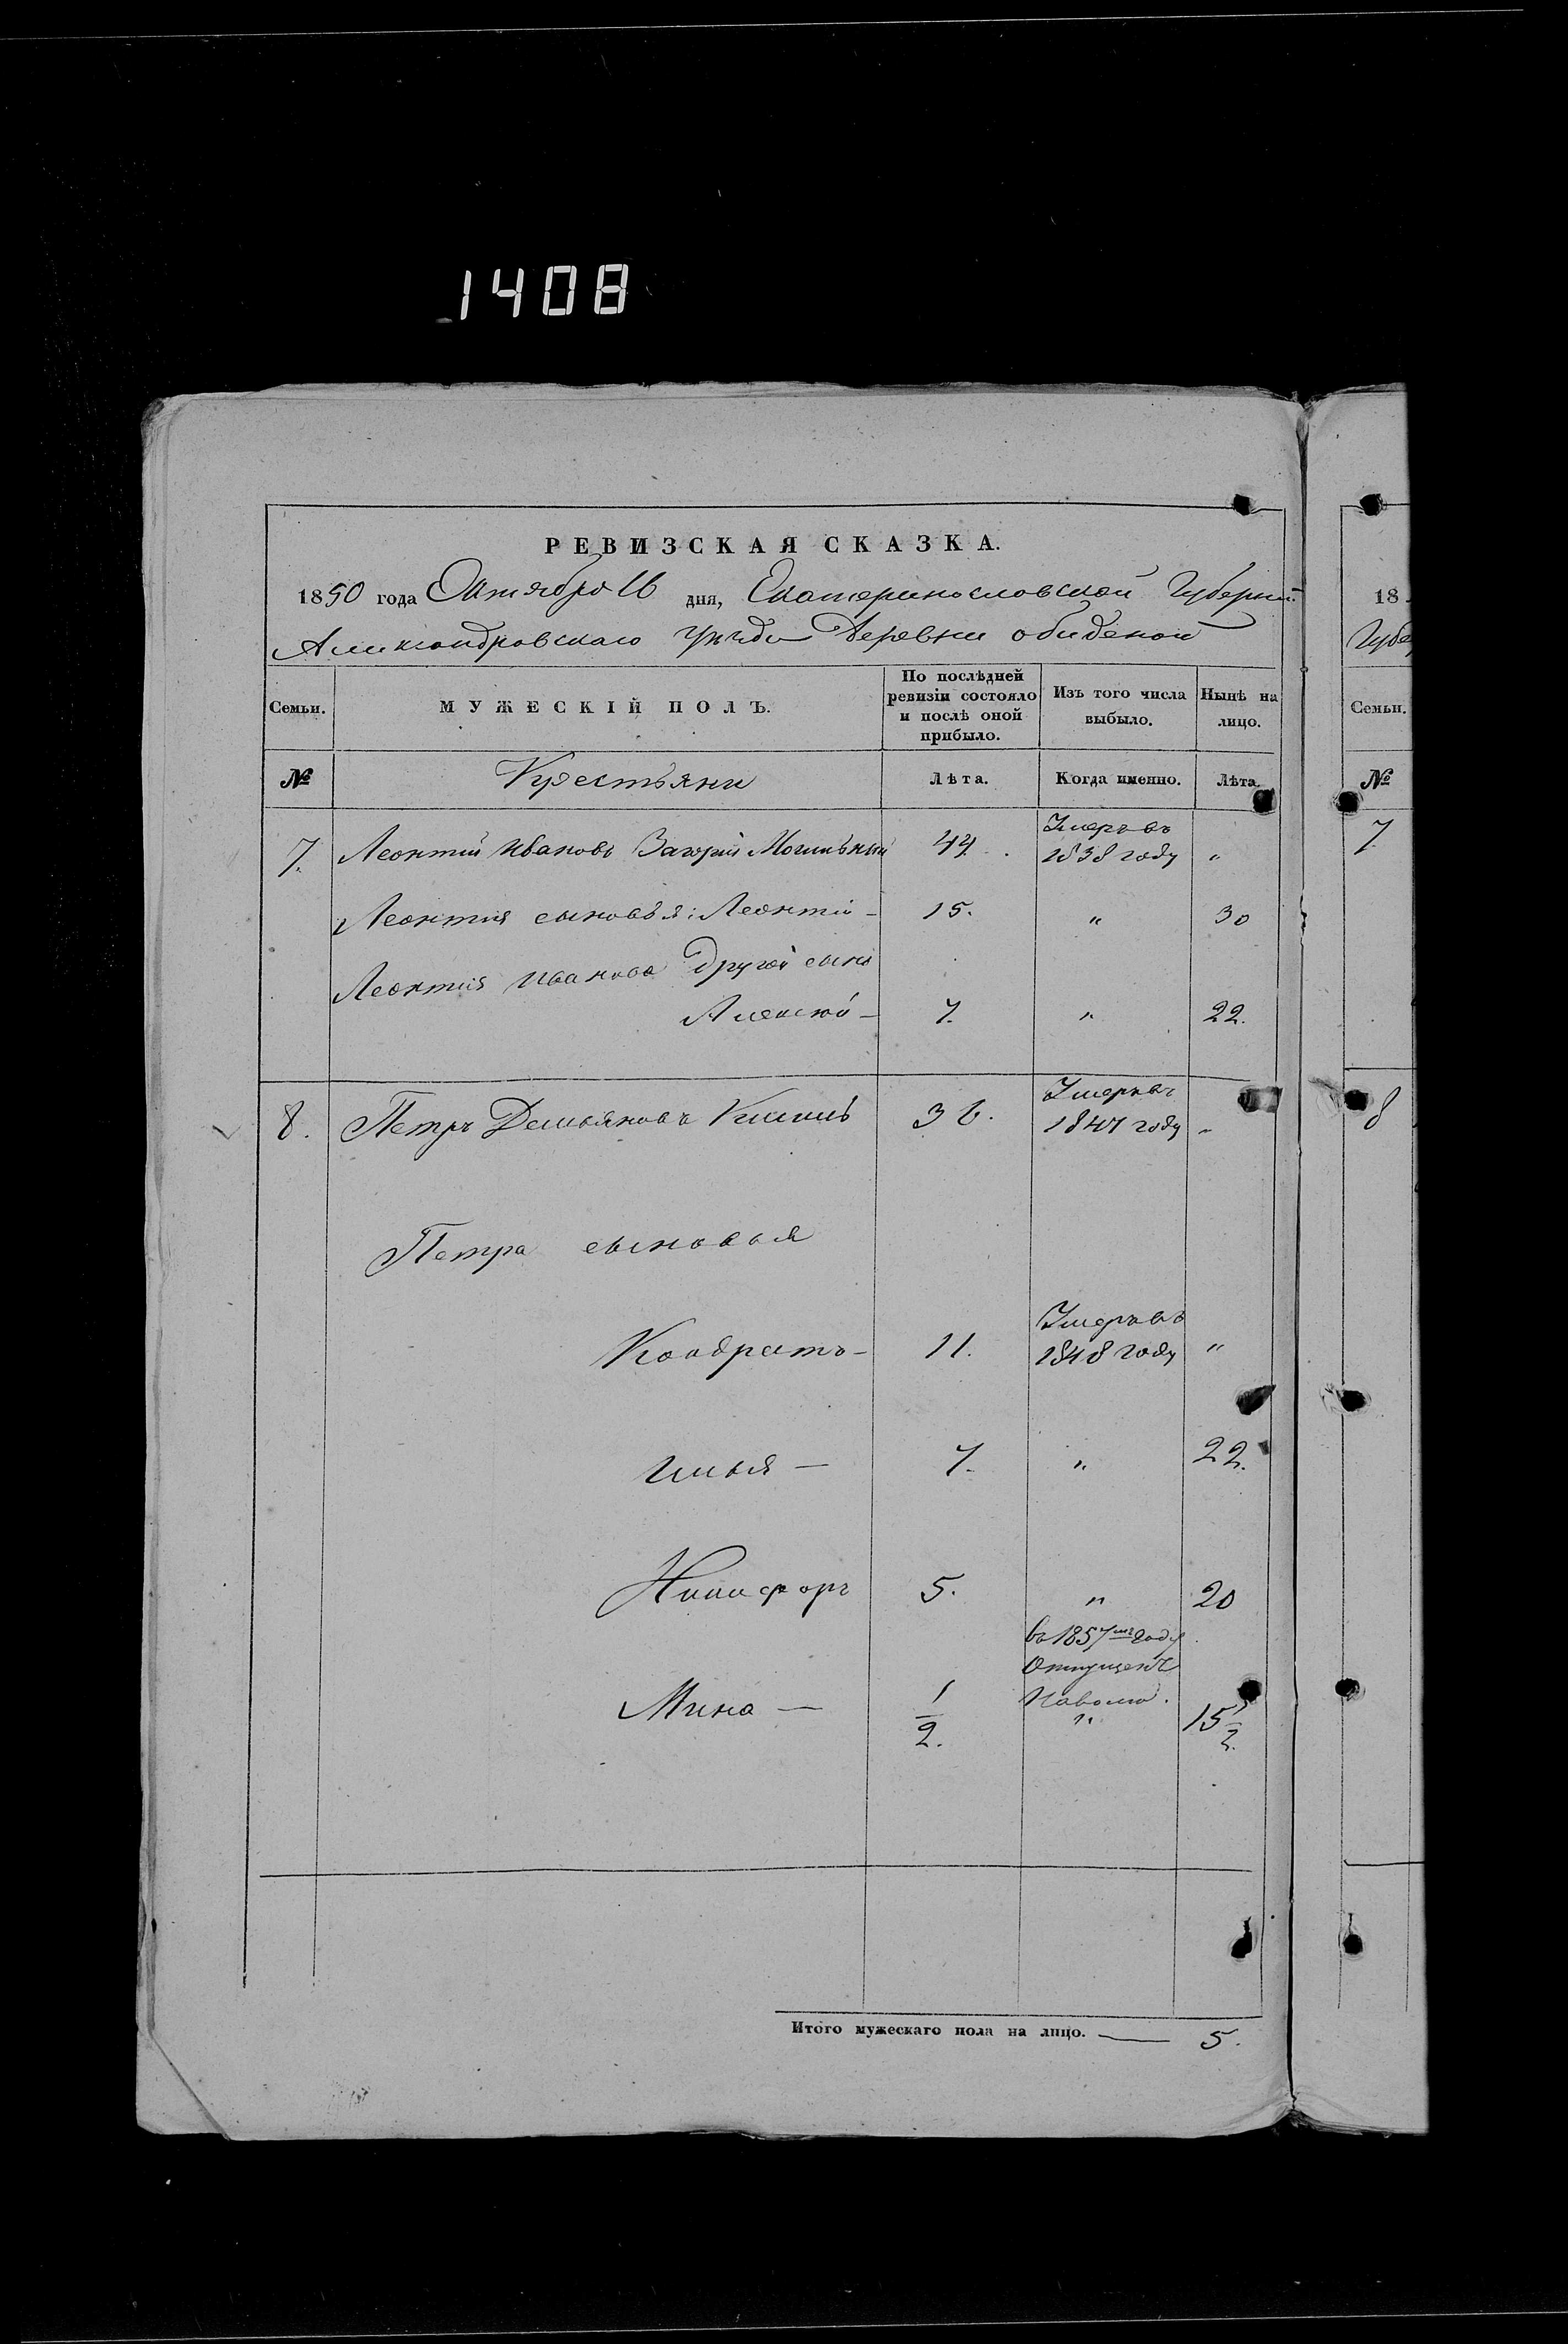 1408
РЕВИЗСКАЯ СКАЗКА.
1850 года Октября 16 дня, Екатеринославской Губерніи
Александровскаго уѣзда Деревни обиденой
Семьи.
МУЖЕСКІЙ ПОЛЪ.
По послѣдней ревизіи состояло и послѣ оной прибыло.
Изъ того числа выбыло.
Нынѣ на лицо.
№
Крестьяни
Лѣта.
Когда именно.
Лѣта.
7. Леонтій Ивановъ Могильный 44. Умеръ въ 1838 году "
Леонтия сыновья: Леонтій - 15. " 30
Леонтія Иванова Другой сынъ
Алексѣй - 7. " 22.
8. Петръ Демьяновъ 36. Умеръ въ 1847 году "
Петра сыновья
Кондратъ - 11. Умеръ въ 1848 году "
Илья - 7. " 22.
Никифоръ 5. " 20
въ 1857мъ году
Отпущенъ
Мина - 1/2. На волю. " 15 1/2.
Итого мужескаго пола на лицо. — 5.
18
Губер
Семьи.
№
7
8